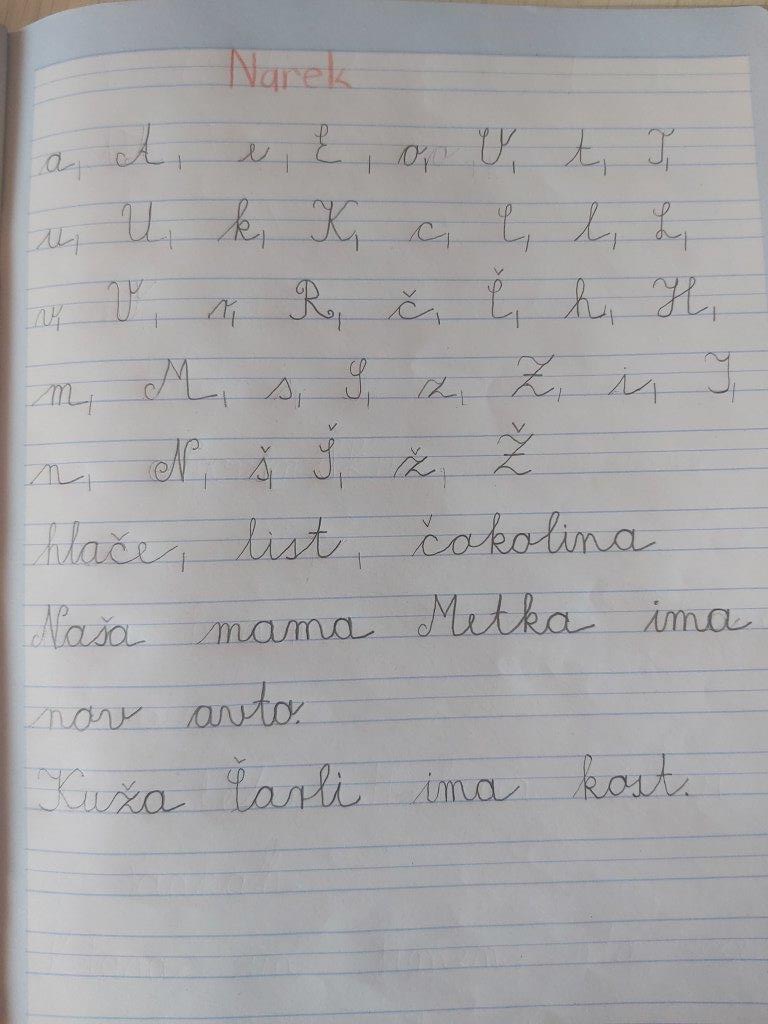 Narek
a, A, e, E, o, O, t, T,
u, U, k, K, c, C, l, L,
v, V, r, R, č, Č, h, H,
m, M, s, S, z, Z, i, I,
n, N, š, Š, ž, Ž
hlače, list, čokolina
Naša mama Metka ima
nov avto.
Kuža Čarli ima kost.